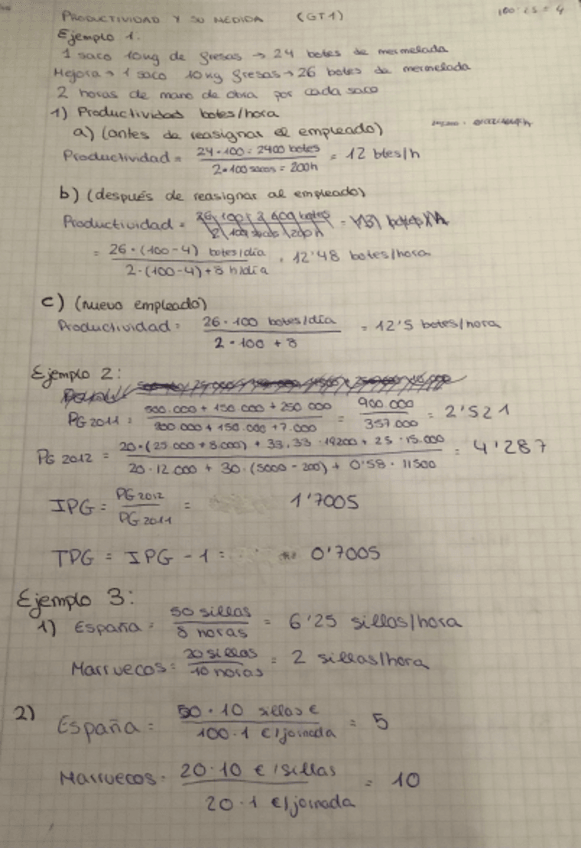 PRODUCTIVIDAD Y SU MEDIDA (GT1)
100-25 = 4
Ejemplo 1.
1 saco 10kg de fresas → 24 botes de mermelada
Mejora → 1 saco 10kg fresas → 26 botes de mermelada
2 horas de mano de obra por cada saco
1) Productividad botes/hora
a) (antes de reasignar al empleado)
Productividad = 24·100 = 2400 botes / 2·100 sacos = 200h = 12 btes/h
b) (después de reasignar al empleado)
Productividad =
= 26·(100-4) botes/día / 2·(100-4)+8 h/día = 12'48 botes/hora
c) (nuevo empleado)
Productividad = 26·100 botes/día / 2·100 + 8 = 12'5 botes/hora
Ejemplo 2:
PG 2011 = 500.000 + 150.000 + 250.000 / 200.000 + 150.000 + 7.000 = 900.000 / 357.000 = 2'521
PG 2012 = 20·(25.000 + 8.000) + 33,33·19200 + 25·15.000 / 20·12.000 + 30·(5000 - 200) + 0'58·11500 = 4'287
IPG = PG 2012 / PG 2011 = 1'7005
TPG = IPG - 1 = 0'7005
Ejemplo 3:
1) España = 50 sillas / 8 horas = 6'25 sillas/hora
Marruecos = 20 sillas / 10 horas = 2 sillas/hora
2) España = 50·10 sillas € / 100·1 €/jornada = 5
Marruecos = 20·10 €/sillas / 20·1 €/jornada = 10